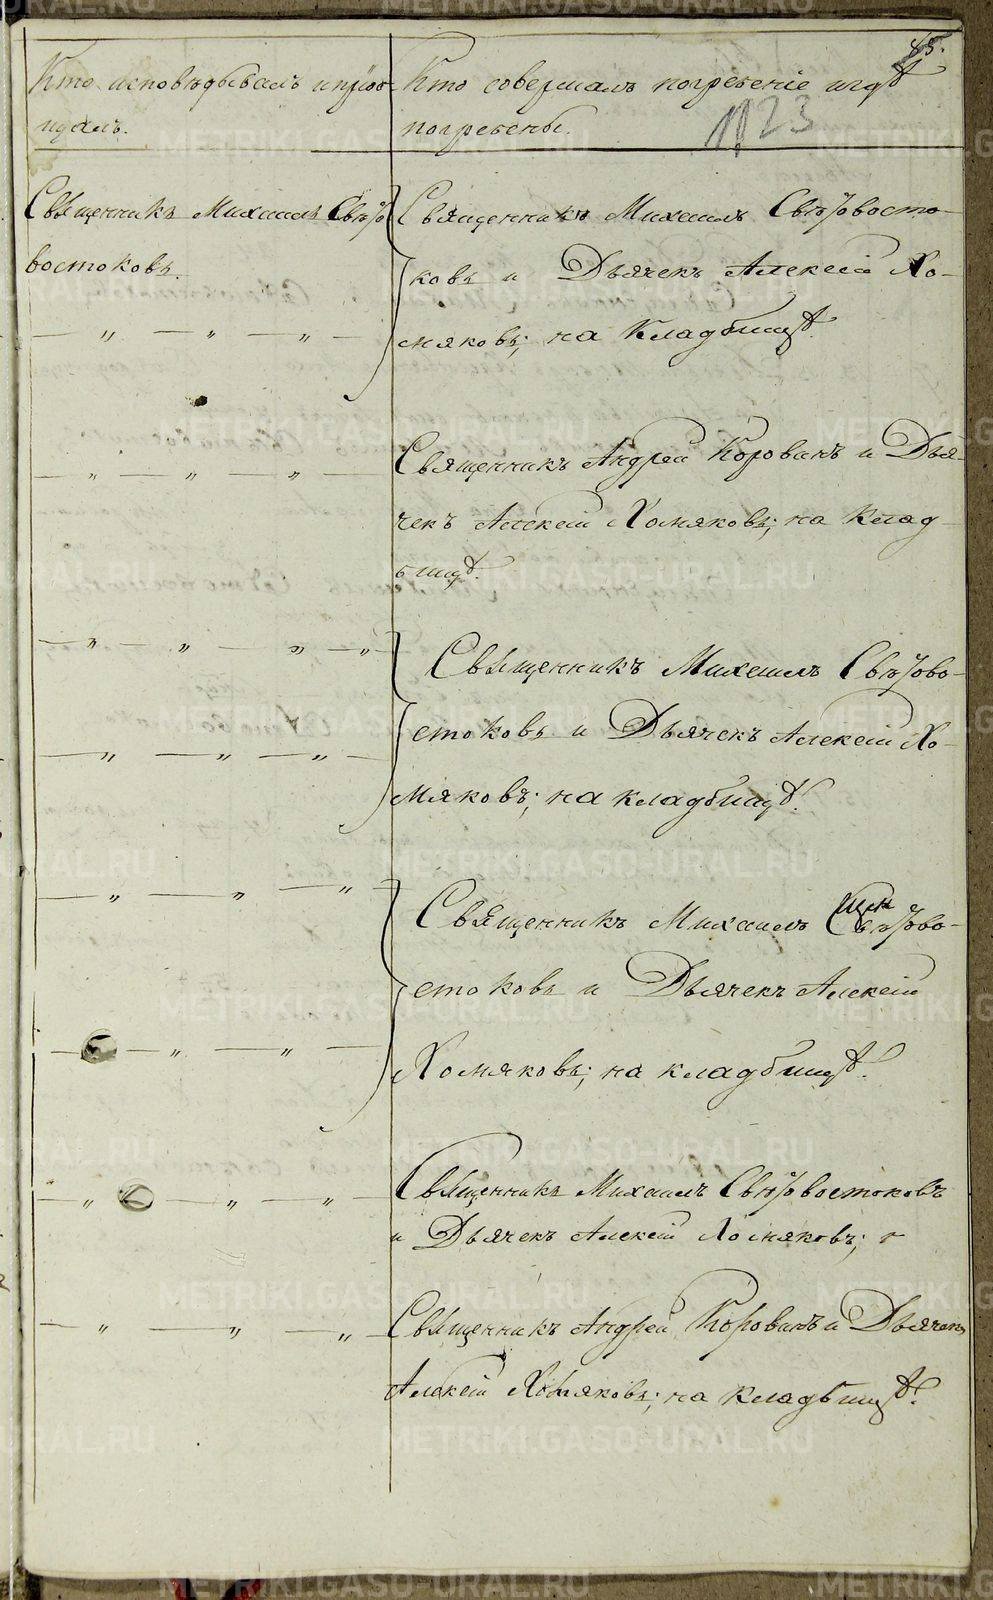 85.
Кто исповѣдывалъ и пріоб-
щалъ.
Кто совершалъ погребеніе и гдѣ
погребены.
1123
Священникъ Михаилъ Свѣтово-
востоковъ.
Священникъ Михаилъ Свѣтовосто-
ковъ и Дьячекъ Алексій Хо-
мяковъ; на Кладбищѣ.
Священникъ Андрей Короваевъ и Дья-
чекъ Алексій Хомяковъ; на Клад-
бищѣ.
Священникъ Михаилъ Свѣтово-
стоковъ и Дьячекъ Алексій Хо-
мяковъ; на кладбищѣ.
Священникъ Михаилъ Свѣтово-
стоковъ и Дьячекъ Алексій
Хомяковъ; на кладбищѣ.
Священникъ Михаилъ Свѣтовостоковъ
и Дьячекъ Алексій Хомяковъ;
Священникъ Андрей и Дьячекъ
Алексій Хомяковъ; на Кладбищѣ.
METRIKI.GASO-URAL.RU